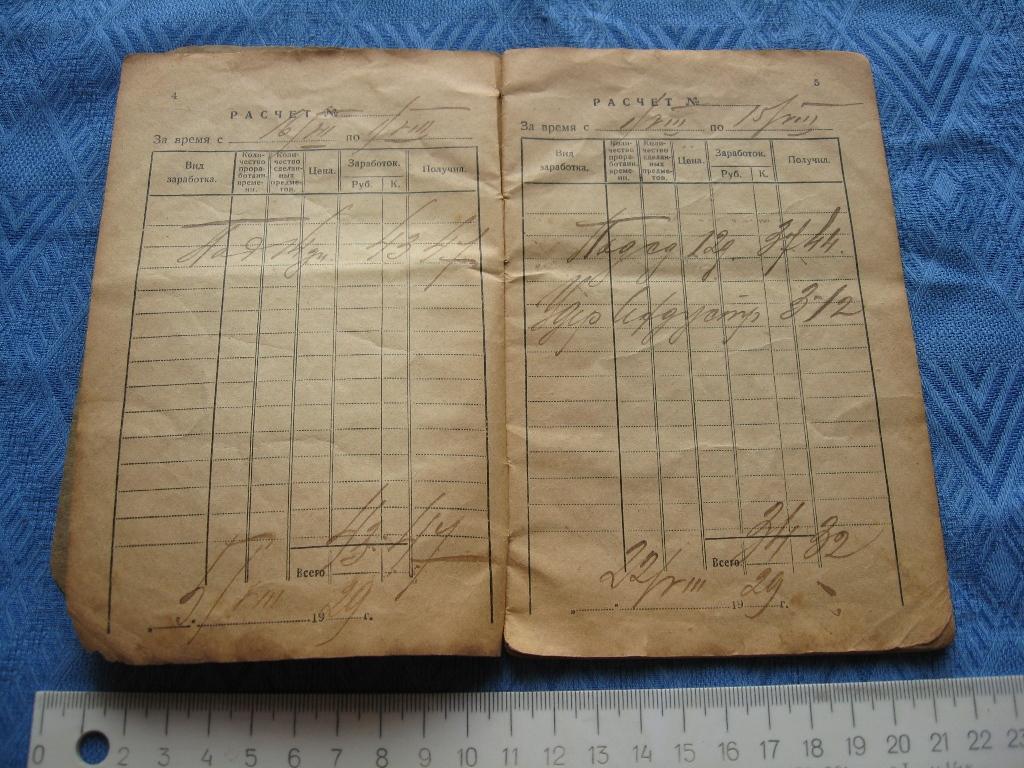 4
РАСЧЕТ №
За время с 16/VII по 1/VIII
Вид заработка.
Коли-чество прора-ботанн. време-ни.
Коли-чество сделан-ных предме-тов.
Цена.
Заработок.
Руб.
К.
Получил.
43 47
43 47
Всего
2/VIII 1929 г.
5
РАСЧЕТ №
За время с 1/VIII по 15/VIII
Вид заработка.
Коли-чество прора-ботанн. време-ни.
Коли-чество сделан-ных предме-тов.
Цена.
Заработок.
Руб.
К.
Получил.
12д. 37 44.
3-12
34 32
Всего
22/VIII 1929 г.
0 2 3 4 5 6 7 8 9 10 11 12 13 14 15 16 17 18 19 20 21 22 23